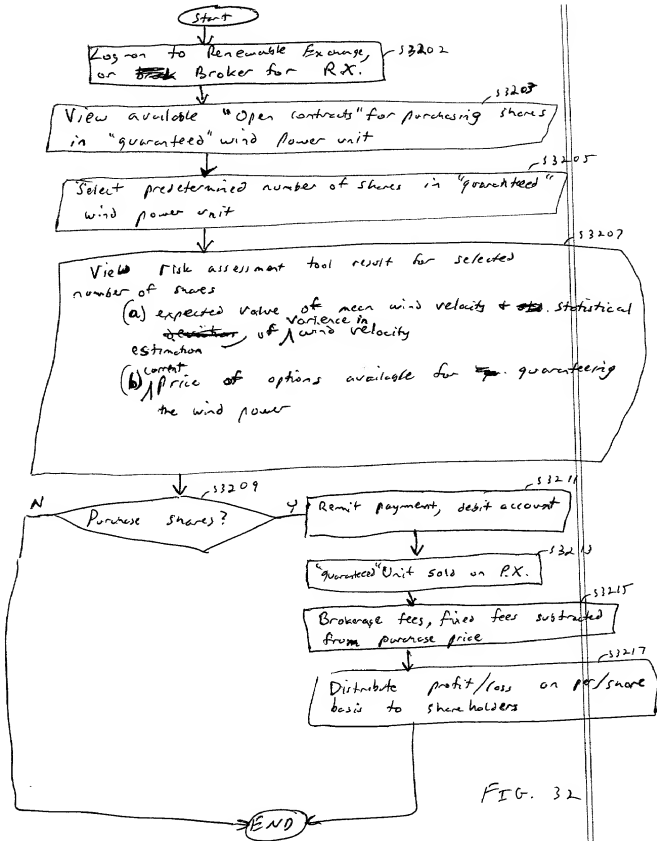 Start
S3202
Log-on to Renewable Exchange,
or Broker for R.X.
S3203
View available "Open contracts" for purchasing shares
in "guaranteed" wind power unit
S3205
Select predetermined number of shares in "guaranteed"
wind power unit
S3207
View risk assessment tool result for selected
number of shares
(a) expected value of mean wind velocity + statistical
estimation of varience in wind velocity
(b) current Price of options available for guaranteeing
the wind power
S3209
N
Purchase shares?
Y
S3211
Remit payment, debit account
S3213
"guaranteed" Unit sold on R.X.
S3215
Brokerage fees, fixed fees subtracted
from purchase price
S3217
Distribute profit/loss on per/share
basis to shareholders
FIG. 32
END